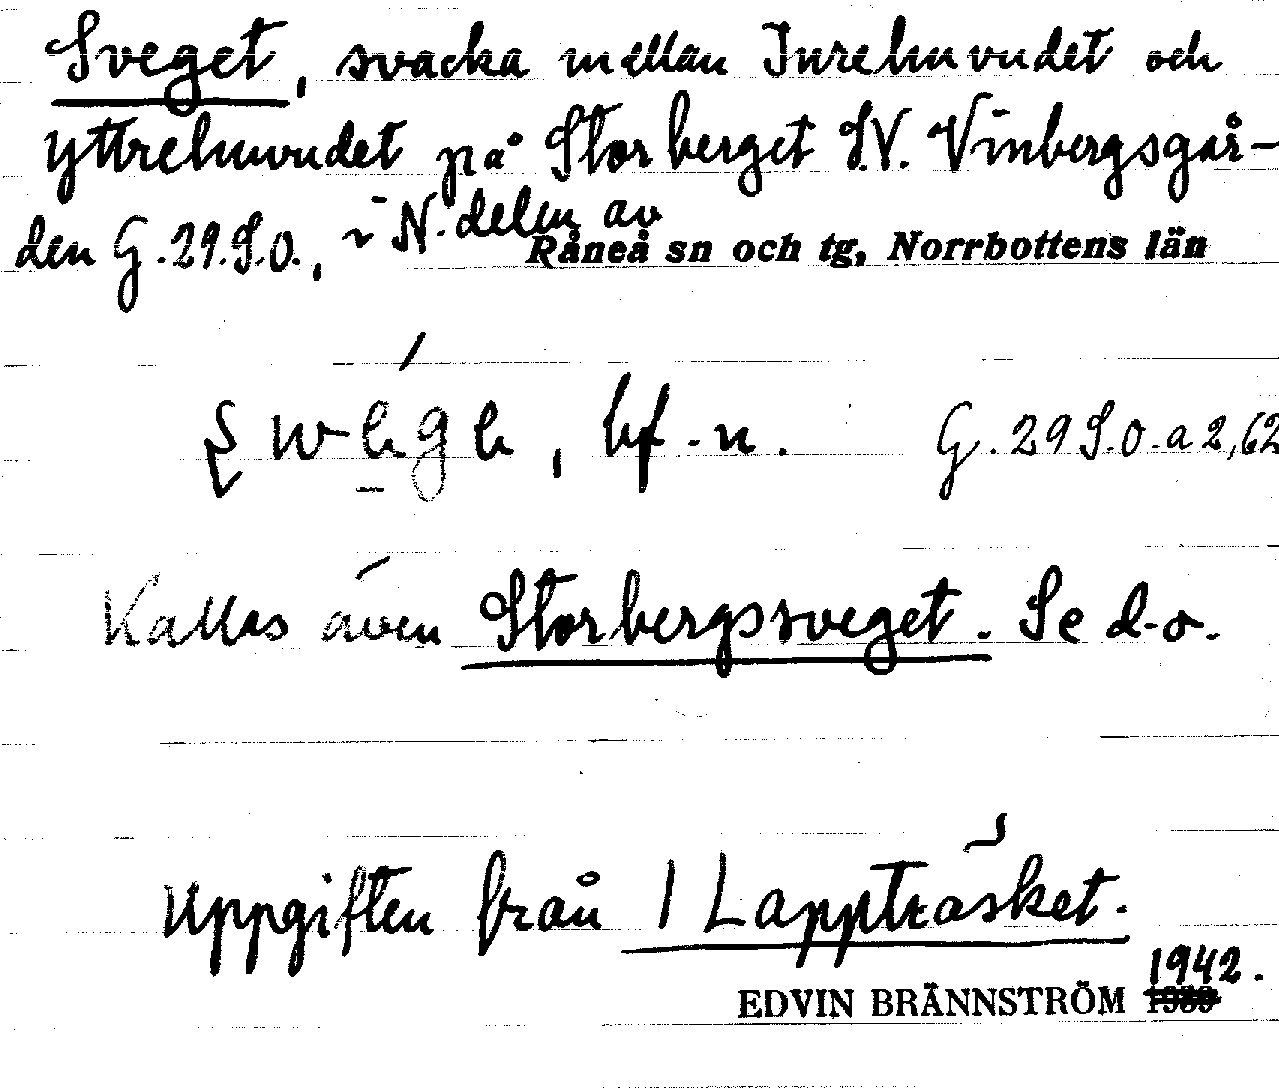 Sveget, svacka mellan Inrehuvudet och
Yttrehuvudet på Storberget S.V. Vinbergsgår-
den G. 29. S.O., i N. delen av
Råneå sn och tg, Norrbottens län
bf. n. G. 29 S.O. a 2,62
Kallas även Storbergssveget. Se d.o.
Uppgiften från 1 Lappträsket.
1942.
EDVIN BRÄNNSTRÖM